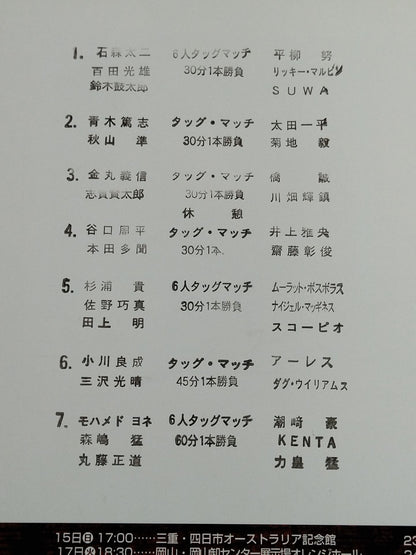 1. 石森太二 6人タッグマッチ 平柳 努
百田光雄 30分1本勝負 リッキー・マルビン
鈴木鼓太郎 SUWA
2. 青木篤志 タッグ・マッチ 太田一平
秋山 準 30分1本勝負 菊地 毅
3. 金丸義信 タッグ・マッチ 橋 誠
志賀賢太郎 30分1本勝負 川畑輝鎮
休 憩
4. 谷口周平 タッグ・マッチ 井上雅央
本田多聞 30分1本 齋藤彰俊
5. 杉浦 貴 6人タッグマッチ ムーラット・ボスポラス
佐野巧真 30分1本勝負 ナイジェル・マッギネス
田上 明 スコーピオ
6. 小川良成 タッグ・マッチ アーレス
三沢光晴 45分1本勝負 ダグ・ウイリアムス
7. モハメド ヨネ 6人タッグマッチ 潮﨑 豪
森嶋 猛 60分1本勝負 KENTA
丸藤正道 力皇 猛
15日(日) 17:00……三重・四日市オーストラリア記念館
17日(火) 18:30……岡山・岡山卸センター展示場オレンジホール